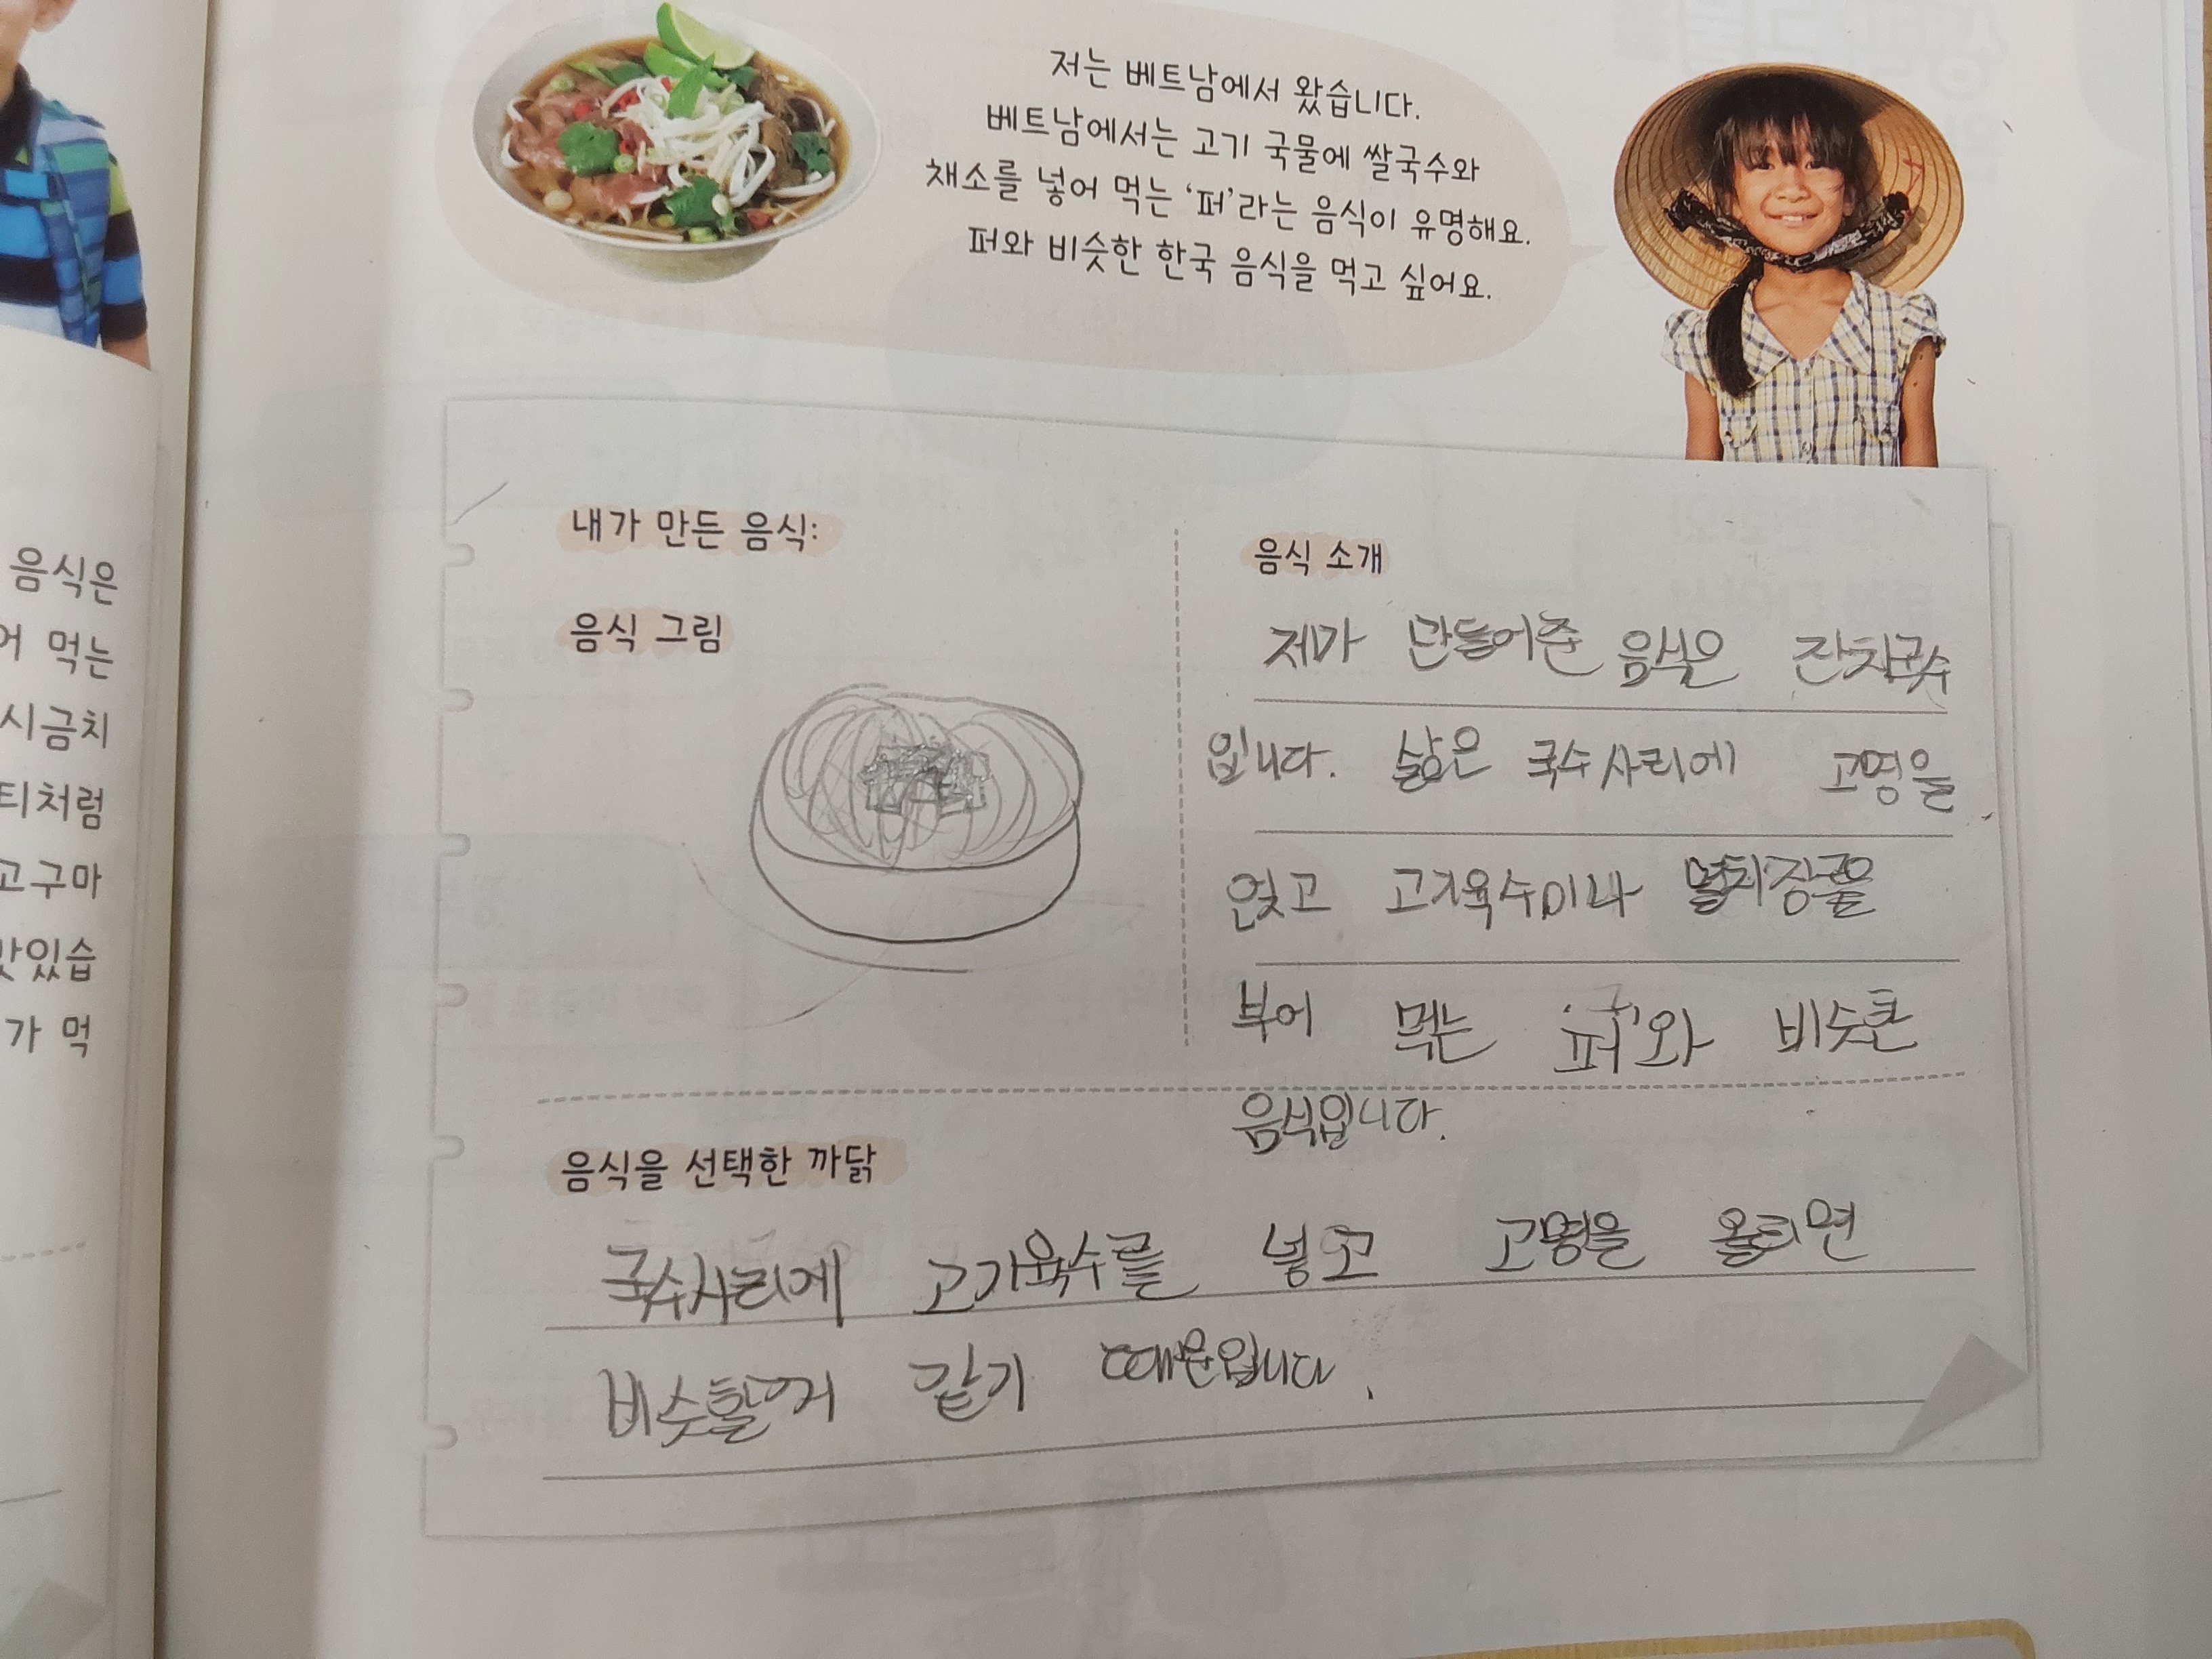 저는 베트남에서 왔습니다.
베트남에서는 고기 국물에 쌀국수와
채소를 넣어 먹는 ‘퍼’라는 음식이 유명해요.
퍼와 비슷한 한국 음식을 먹고 싶어요.
음식은
어 먹는
시금치
티처럼
고구마
맛있습
가 먹
내가 만든 음식:
음식 그림
음식 소개
제가 만들어준 음식은 잔치국수
입니다. 삶은 국수사리에 고명을
얹고 고기육수이나 멸치장국을
부어 먹는 '퍼'와 비슷한
음식입니다.
음식을 선택한 까닭
국수사리에 고기육수를 넣고 고명을 올리면
비슷할거 같기 때문입니다.